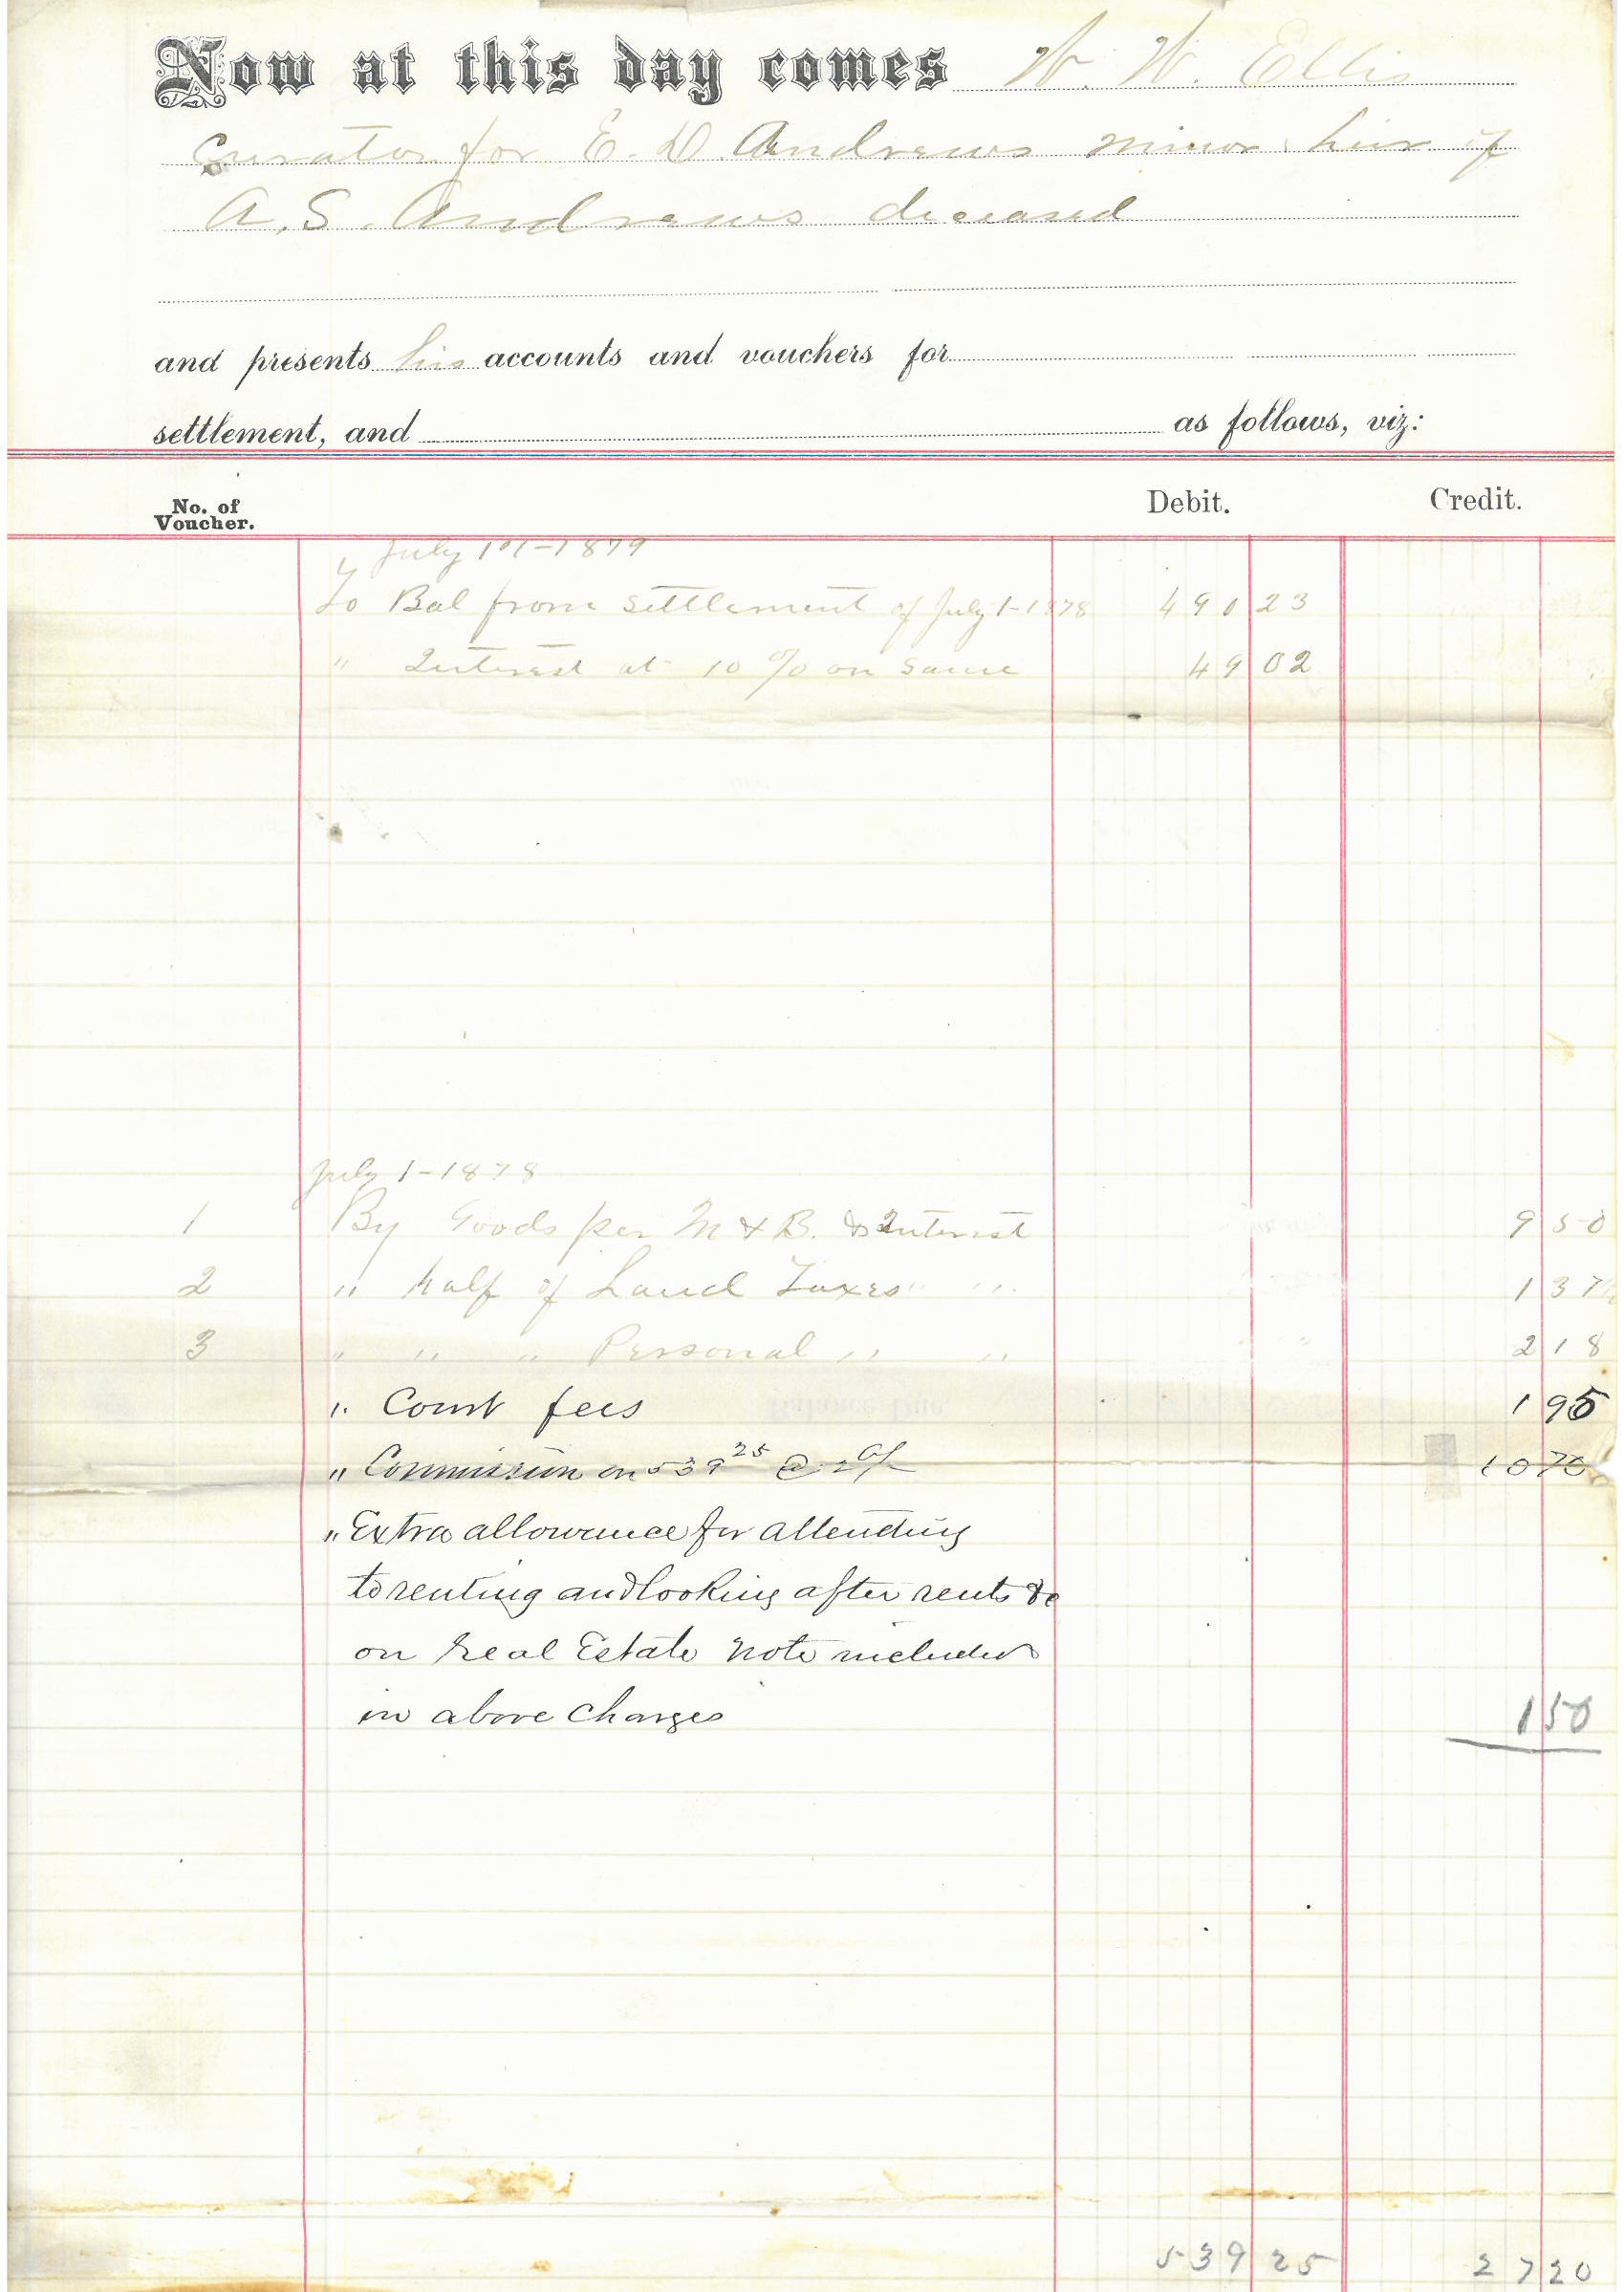 Now at this day comes W. W. Ellis
Curator for E. D. Andrews minor heir of
A. S. Andrews deceased
and presents his accounts and vouchers for
settlement, and as follows, viz:
No. of Voucher. Debit. Credit.
July 1st-1879
To Bal from Settlement of July 1-1878 490 23
" Interest at 10 % on Same 49 02
July 1-1878
1 By Goods per M & B. & Interest 9 50
2 " half of Land Taxes " " 1 37
3 " " " Personal " " 2 18
" Court fees 1 95
" Commission on 539 25 @ 2 % 10 70
" Extra allowance for attending
to renting and looking after rents &c
on Real Estate not included
in above Charges 1 50
539 25 27 20